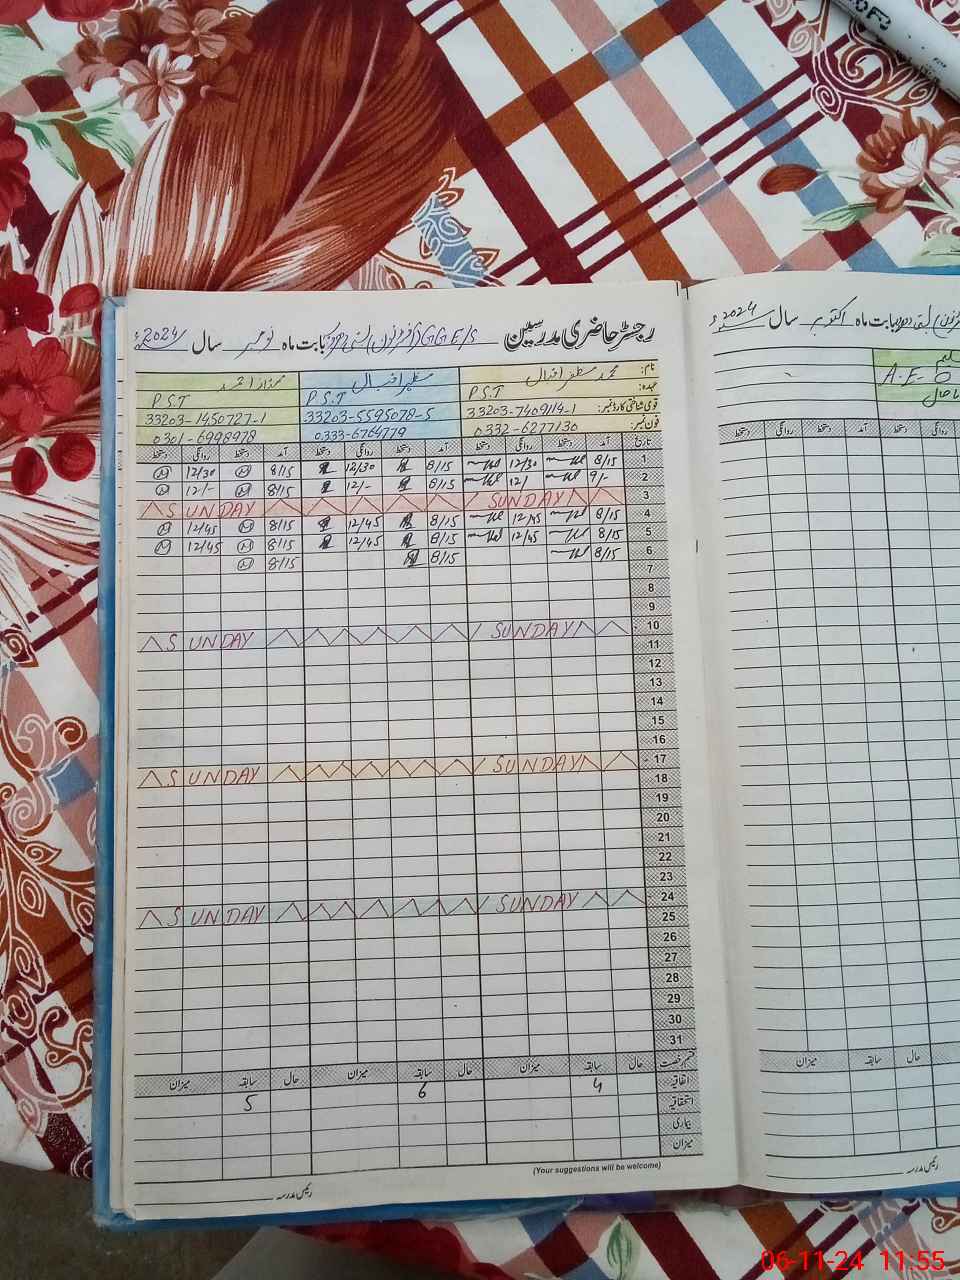 رجسٹر حاضری مدرسین GGE/S بابت ماہ نومبر سال 2024ء
نام: محمد مظفر اقبال
مظہر اقبال
عہدہ: P.S.T
P.S.T
P.S.T
قومی شناختی کارڈ نمبر: 33203-7409114-1
33203-5595078-5
33203-1450727-1
فون نمبر: 0332-6277130
0333-6764779
0301-6998978
تاریخ آمد دستخط روانگی دستخط آمد دستخط روانگی دستخط آمد دستخط روانگی دستخط
1 8/15 12/30 8/15 12/30 8/15 12/30
2 9/- 12/ 8/15 12/- 8/15 12/-
3 SUNDAY SUNDAY
4 8/15 12/45 8/15 12/45 8/15 12/45
5 8/15 12/45 8/15 12/45 8/15 12/45
6 8/15 8/15 8/15
7
8
9
10 SUNDAY SUNDAY
11
12
13
14
15
16
17 SUNDAY SUNDAY
18
19
20
21
22
23
24 SUNDAY SUNDAY
25
26
27
28
29
30
31
قسم رخصت حال سابقہ میزان حال سابقہ میزان حال سابقہ میزان
اتفاقیہ 4 6 5
استحقاقیہ
بیماری
میزان
(Your suggestions will be welcome)
رئیس مدرسہ
بابت ماہ اکتوبر سال 2024ء
A.E.O
آمد دستخط روانگی دستخط آمد دستخط روانگی
حال سابقہ میزان
رئیس مدرسہ
06-11-24 11:55